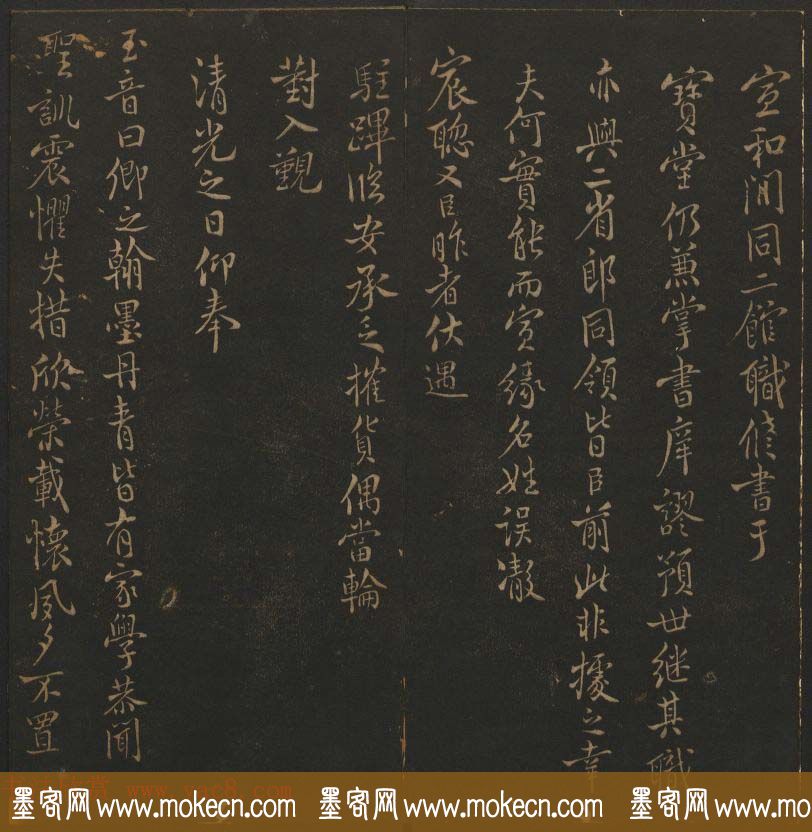 宣和間同二館職修書于
寶堂仍兼掌書庫謬預世継其職
亦與二省郎同領皆臣前此非據之幸
夫何實能而寅緣名姓误澈
宸聰又臣昨者伏遇
駐蹕臨安承乏搉貨偶當輪
對入覲
清光之日仰奉
玉音曰卿之翰墨丹青皆有家學恭聞
聖訓震懼失措欣榮載懷夙夕不置
墨客网 www.mokecn.com 墨客网 www.mokecn.com 墨客网 www.mokecn.com